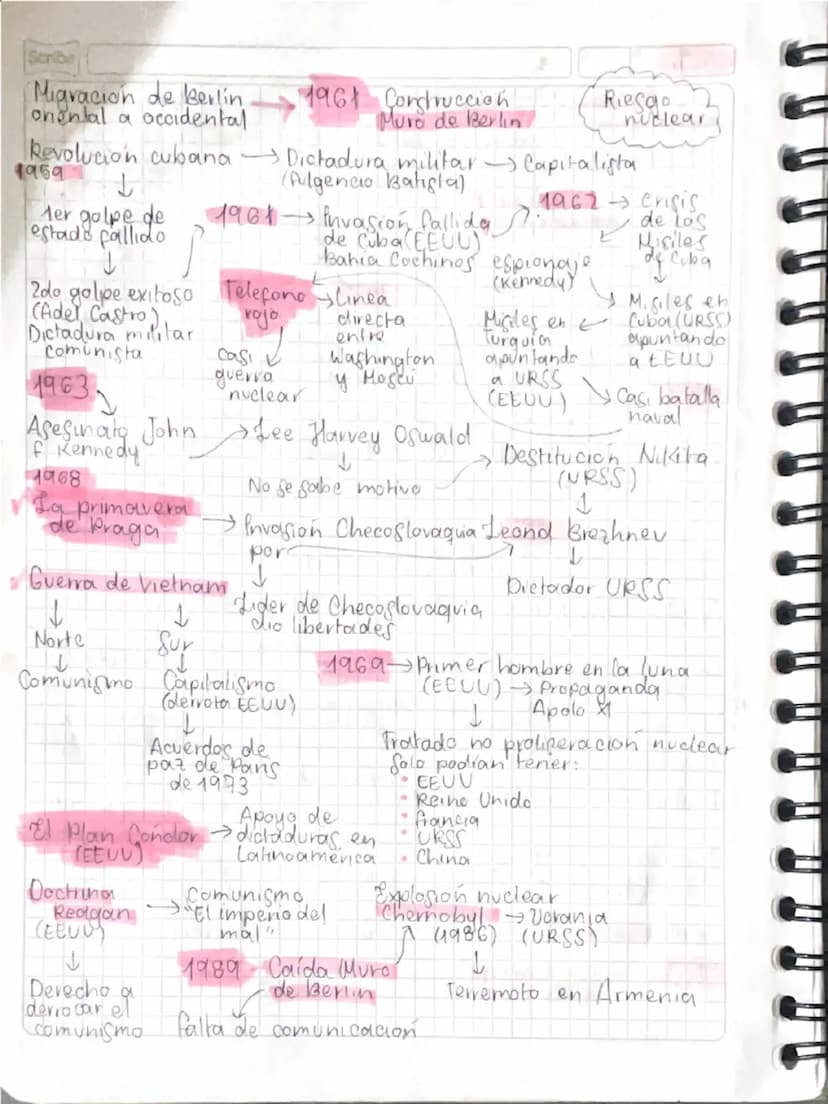 Scribe
Migración de Berlín
oriental a occidental
→ 1961 Construcción
Muro de Berlín
Riesgo
nuclear
Revolución cubana → Dictadura militar → Capitalista
1959
(Fulgencio Batista)
↓
1er golpe de
estado fallido
↓
2do golpe exitoso
(Fidel Castro)
Dictadura militar
comunista
1961 → Invasión fallida
de Cuba (EEUU)
Bahía Cochinos
1962 → Crisis
de los
Misiles
de Cuba
espionaje
(Kennedy)
Misiles en
Cuba (URSS)
apuntando
a EEUU
Misiles en
Turquía
apuntando
a URSS
(EEUU)
Casi batalla
naval
Telefono
rojo
→ Linea
directa
entre
Washington
y Moscú
casi
guerra
nuclear
1963
Asesinato John
F. Kennedy
→ Lee Harvey Oswald
↓
No se sabe motivo
→ Destitución Nikita
(URSS)
↓
Leonid Brezhnev
↓
Dictador URSS
1968
La primavera
de Praga
→ Invasión Checoslovaquia
por
↓
Lider de Checoslovaquia
dio libertades
Guerra de Vietnam
↓ ↓
Norte Sur
↓ ↓
Comunismo Capitalismo
(derrota EEUU)
↓
Acuerdos de
paz de París
de 1973
1969 → Primer hombre en la luna
(EEUU) → Propaganda
Apolo XI
↓
Tratado no proliferación nuclear
Solo podían tener:
• EEUU
• Reino Unido
• Francia
• URSS
• China
El Plan Cóndor
(EEUU)
→ Apoyo de
dictaduras en
Latinoamérica
Doctrina
Reagan
(EEUU)
→ Comunismo
"El imperio del
mal"
↓
Derecho a
derrocar el
comunismo
Explosión nuclear
Chernobyl → Ucrania
(1986) (URSS)
↓
Terremoto en Armenia
1989 Caída Muro
de Berlín
falta de comunicación